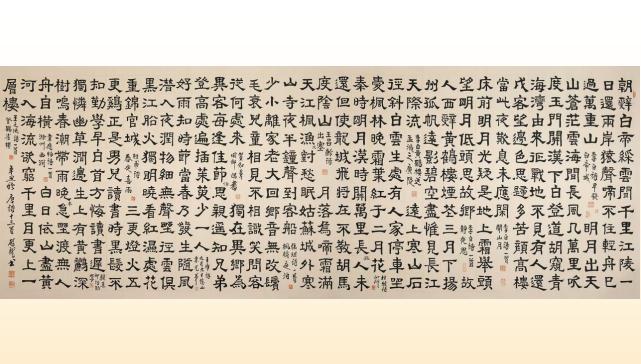 朝辭白帝綵雲間千里江陵一
日還兩岸猿聲啼不住輕舟已
過萬重山 李白詩早發白帝城 明月出天
山蒼茫雲海間長風幾萬里吹
度玉門關漢下白登道胡窺青
海灣由來征戰地不見有人還
戍客望邊色思歸多苦顏高樓
當此夜歎息未應閑 李白詩一首關山月
床前明月光疑是地上霜舉頭
望明月低頭思故鄉 李白詩一首靜夜思 故
人西辭黃鶴樓煙花三月下揚
州孤帆遠影碧空盡惟見長江
天際流 遠上寒山石
徑斜白雲生處有人家停車坐
愛楓林晚霜葉紅于二月花
秦時明月漢時關萬里長人未
還但使龍城飛將在不教胡馬
度陰山 月落烏啼霜滿
天江楓漁對愁眠姑蘇城外寒
山寺夜半鐘聲到客船
少小離家老大回鄉音無改鬢
毛衰兒童相見不相識笑問客
從何處來 獨在異鄉為
異客每逢佳節倍思親遙知兄弟
登高處遍插茱萸少一人
好雨知時節當春乃發生隨風
潛入夜潤物細無聲野徑雲俱
黑江船火獨明曉看紅濕處花
重錦官城 三更燈火五
更雞正是男兒讀書時黑髮不
知勤學早白首方悔讀書遲
獨憐幽草澗邊生上有黃鸝深
樹鳴春潮帶雨晚急野渡無人
舟自橫 白日依山盡黃
河入海流欲窮千里目更上一
層樓